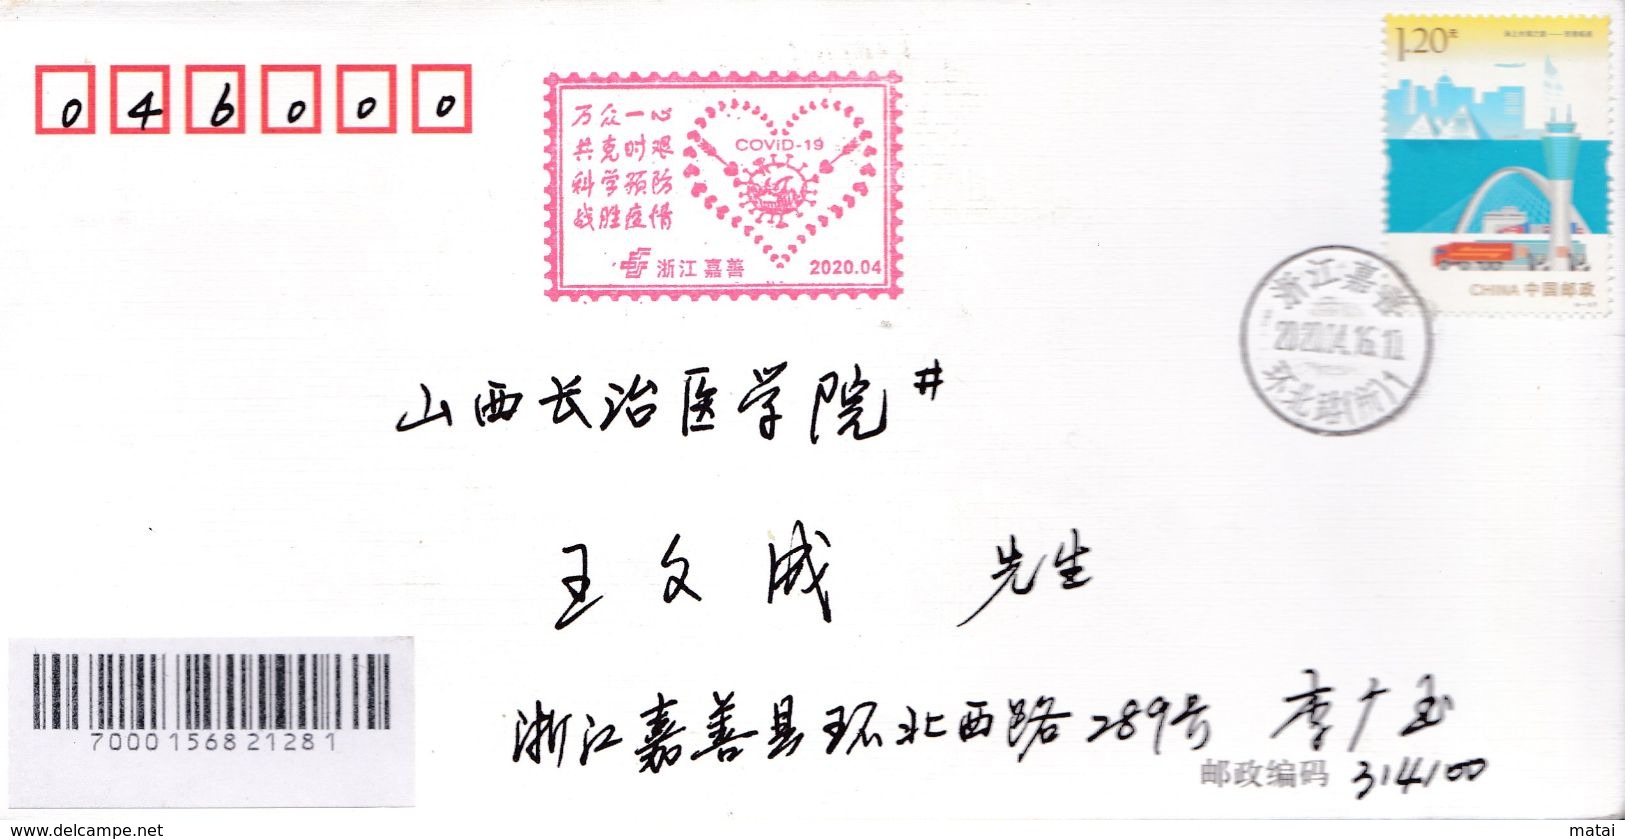 046000
万众一心
共克时艰
科学预防
战胜疫情
COViD-19
浙江 嘉善
2020.04
1.20元
CHINA 中国邮政
浙江·嘉善
2020.04.16.10
环北路(所)1
山西长治医学院#
王文成 先生
70001568212811
浙江嘉善县环北西路289号 李广玉
邮政编码 314100
www.delcampe.net
matai